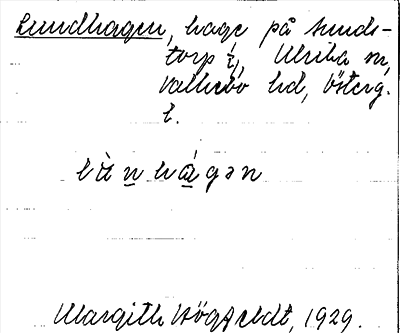 Lundhagen, hage på Lunds-
torp i, Ulrika sn,
Valkebo hd, Österg.
l.
lùnhágən
Margith Högfeldt, 1929.